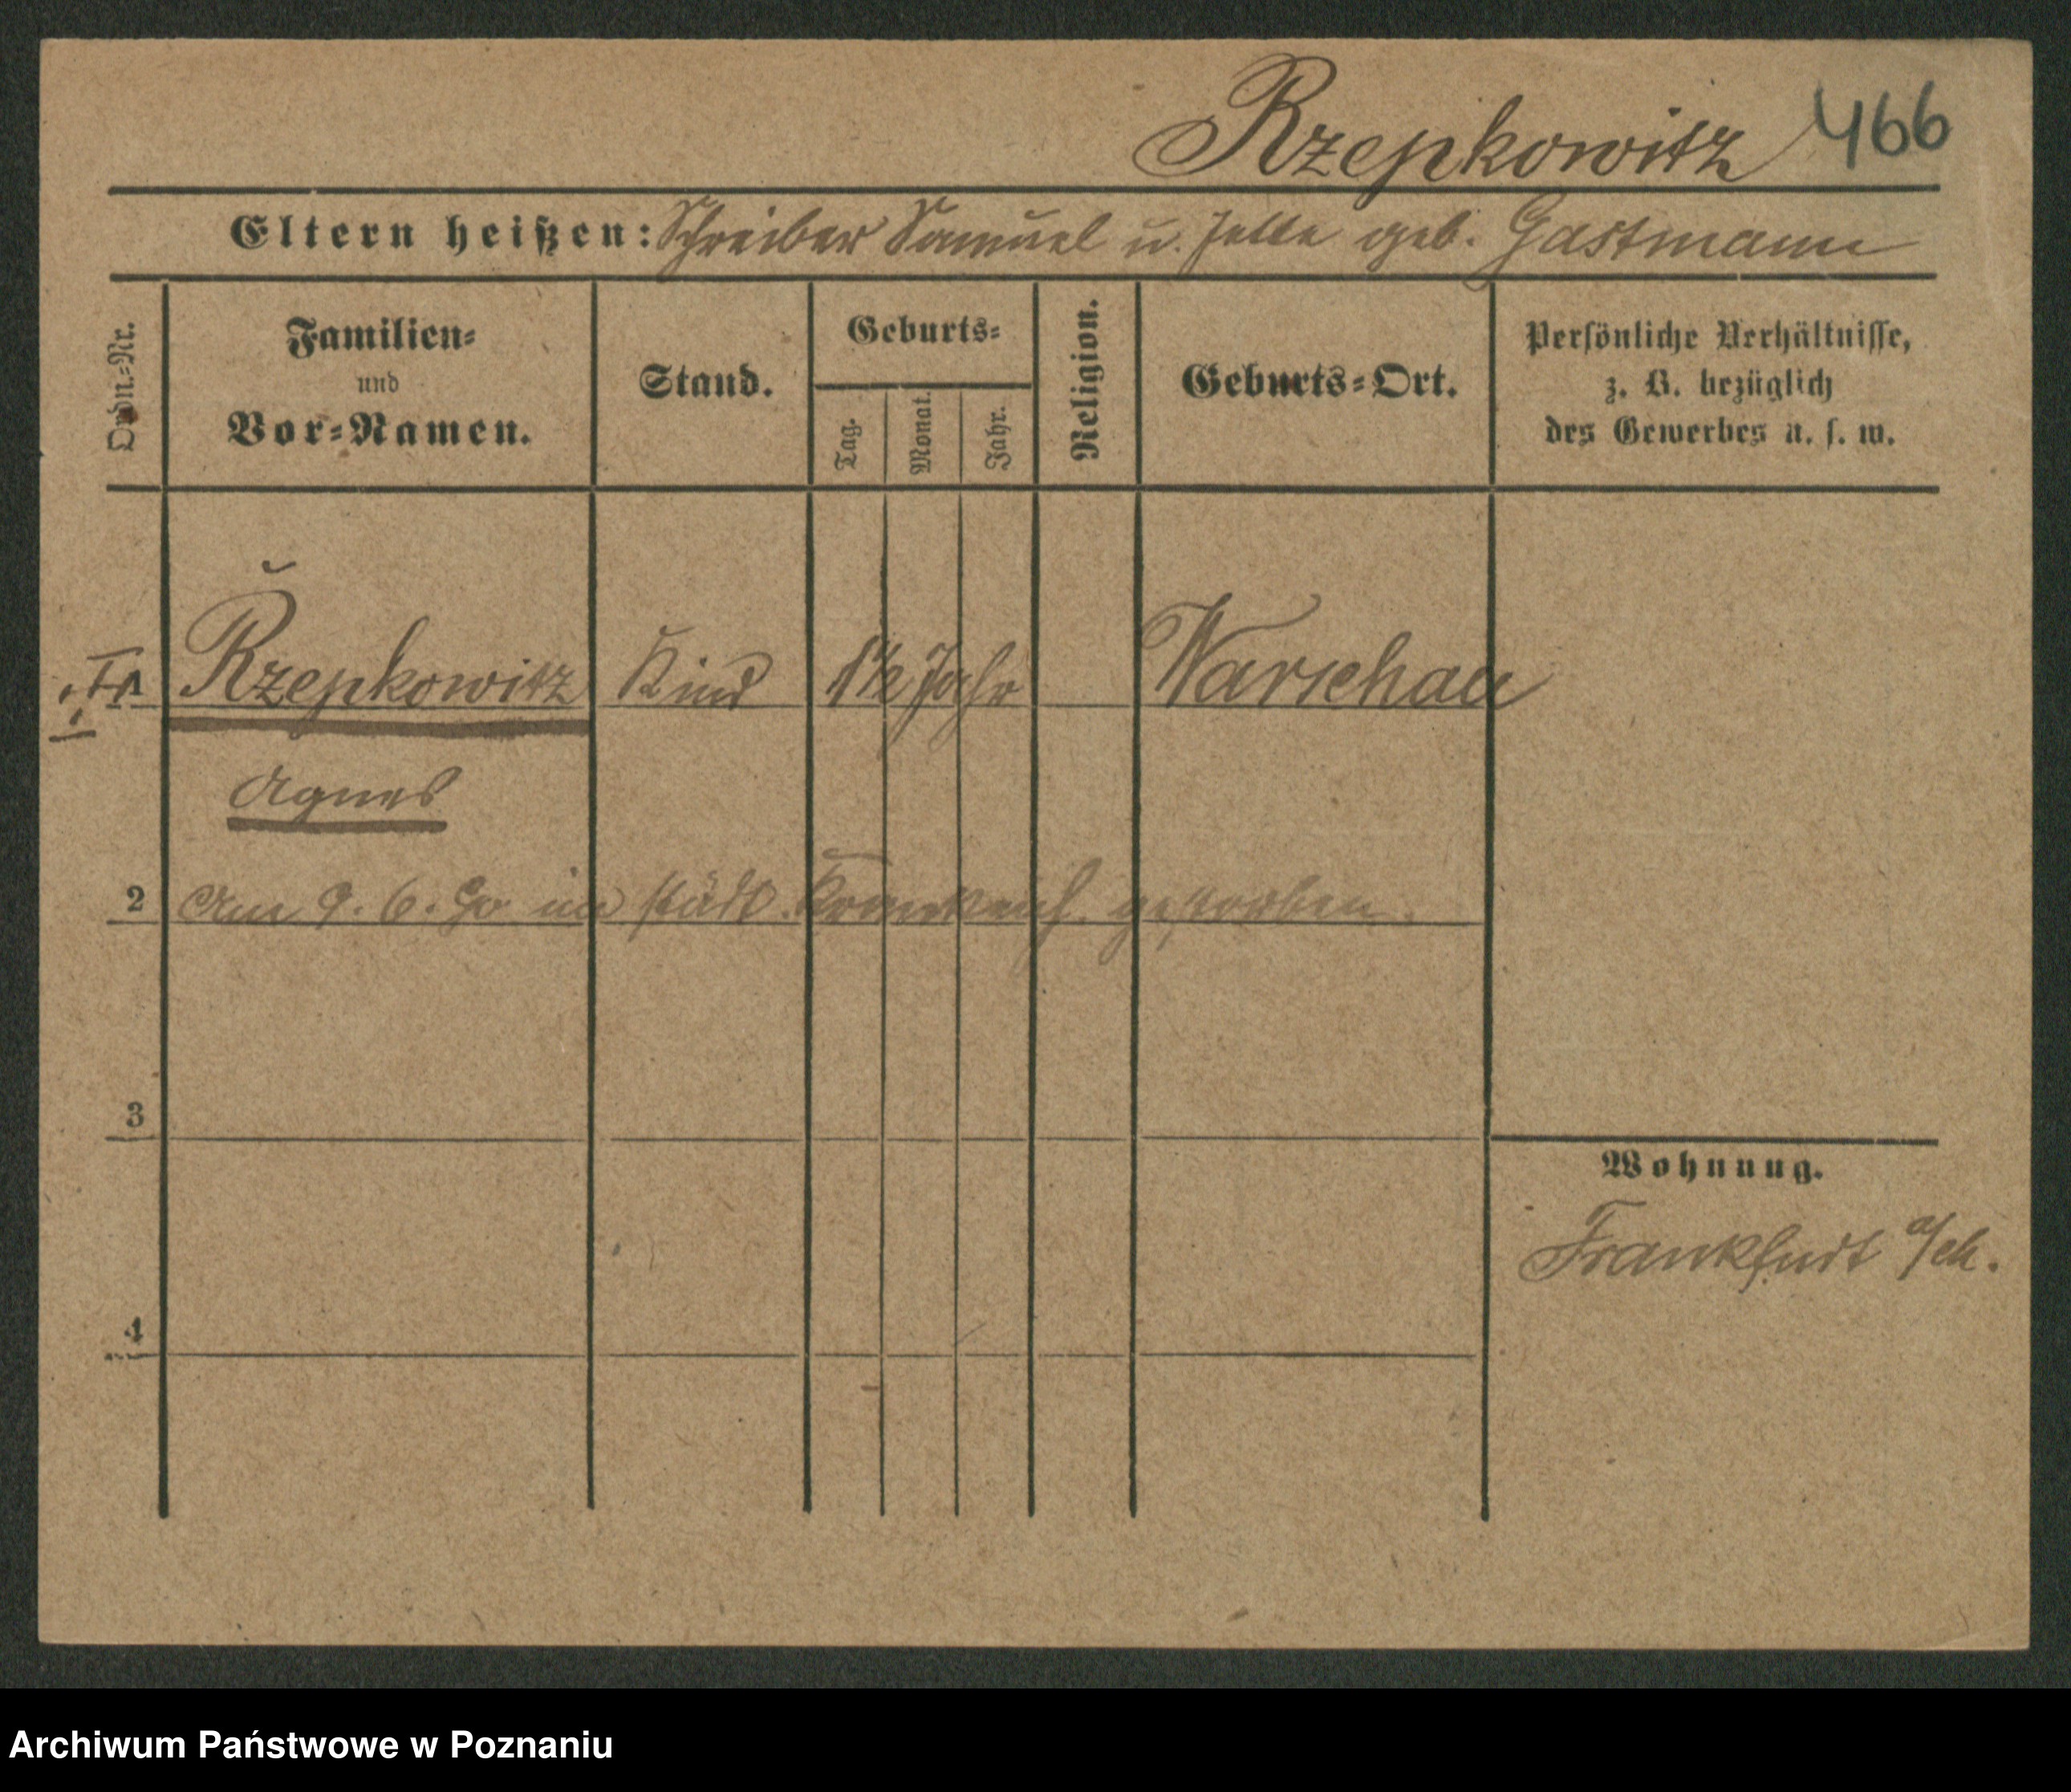 Rzepkowitz 466
Eltern heißen: Schreiber Samuel u. geb. Gastmann
Ordn.-Nr.
Familien-
und
Vor-Namen.
Stand.
Geburts-
Tag.
Monat.
Jahr.
Religion.
Geburts-Ort.
Persönliche Verhältnisse,
z. B. bezüglich
des Gewerbes u. s. w.
1 Rzepkowitz Kind 1½ Jahr Warschau
Agnes
2 Am 9. 6. im städt. gestorben.
3
Wohnung.
Frankfurt
4
Archiwum Państwowe w Poznaniu